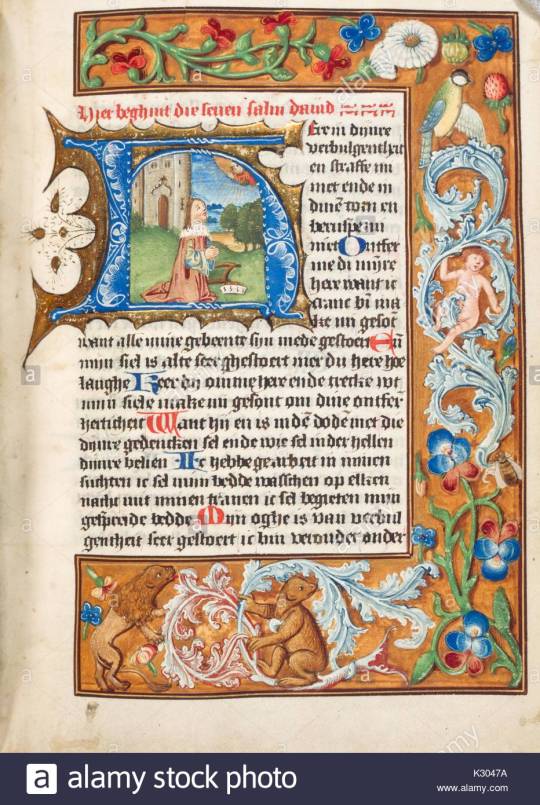 Hier beghint die seuen salm dauid
Here in dijnre
verbulgentheit
en straffe mi
niet ende in
dinē torn en
berispe mi
niet Ontfer
me di mijns
here want ic
cranc bin ma
ke mi gesot
want alle mijne gebeente sijn mede gestoert Eñ
mijn siel is alte seer ghestoert mer du here hoe
langhe Keer dij omme here ende trecke wt
mijn siele make mi gesont om dine ontfer
herticheit Want hij en is in dē dodē niet die
dijnre gedencken sel ende wie sel in der hellen
dijnre belien Ic hebbe gearbeit in minen
suchten ic sel mijn bedde wasschen op elken
nacht mit minen tranen ic sel begieten mijn
gespreide bedde Mijn oghe is van verbul
gentheit seer gestoert ic bin verouder onder
alamy stock photo
K3047A
www.alamy.com